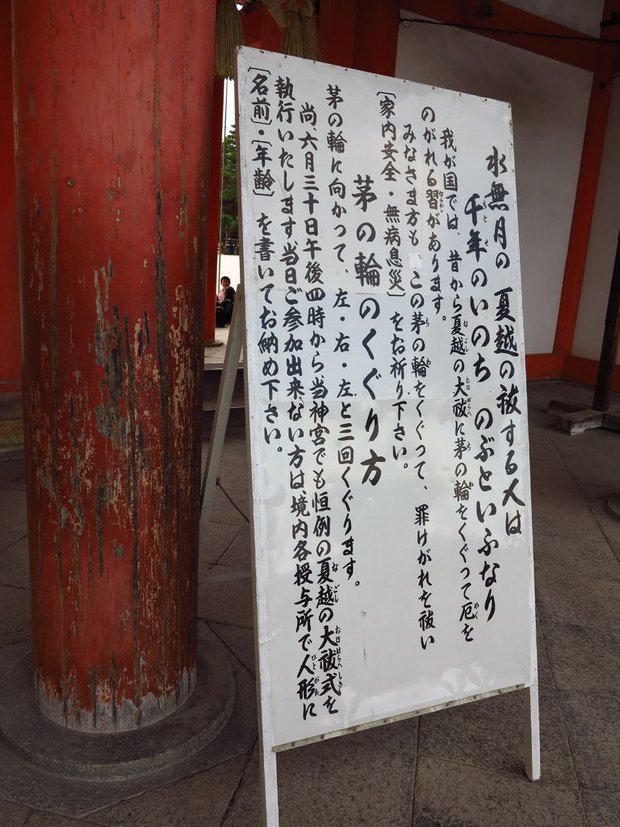 水無月の 夏越の祓する人は
千年のいのち のぶといふなり
我が国では、昔から夏越の大祓に茅の輪をくぐって厄を
のがれる習があります。
みなさま方も、この茅の輪をくぐって、罪けがれを祓い
〔家内安全・無病息災〕をお祈り下さい。
茅の輪のくぐり方
茅の輪に向かって、左・右・左と三回くぐります。
尚、六月三十日午後四時から当神宮でも恒例の夏越の大祓式を
執行いたします当日ご参加出来ない方は、境内各授与所で人形に
〔名前〕・〔年齢〕を書いてお納め下さい。